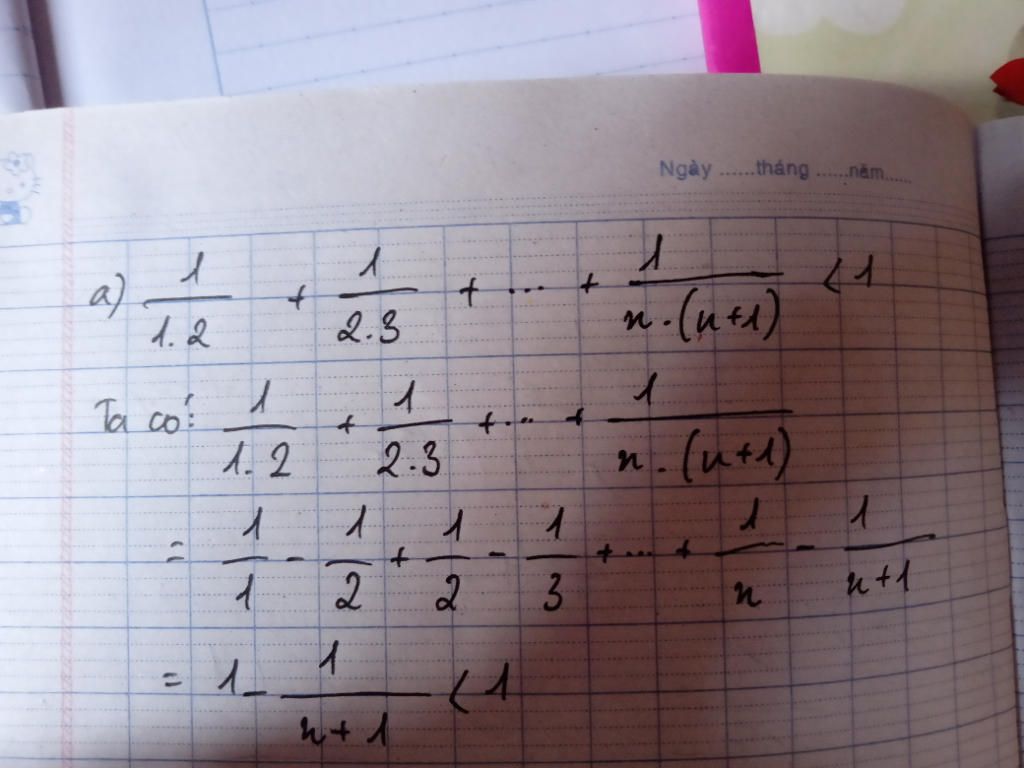 Ngày ......tháng ......năm......
a) 1/1.2 + 1/2.3 + ... + 1/n.(n+1) < 1
Ta có: 1/1.2 + 1/2.3 + ... + 1/n.(n+1)
= 1/1 - 1/2 + 1/2 - 1/3 + ... + 1/n - 1/n+1
= 1 - 1/n+1 < 1